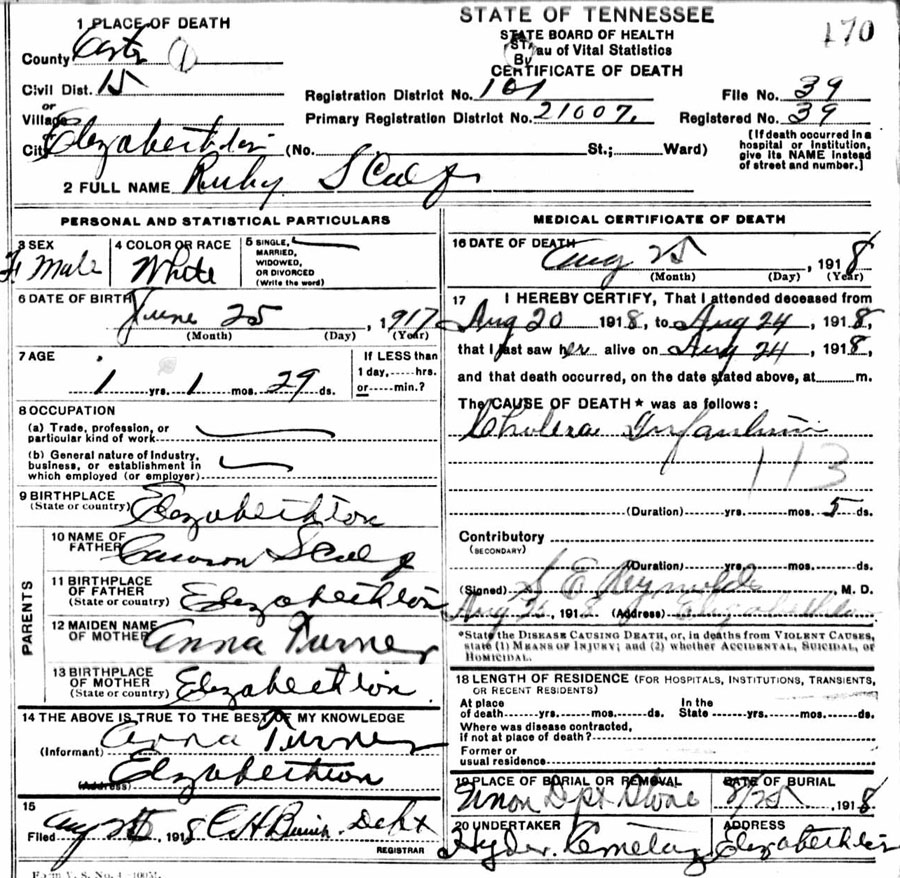 STATE OF TENNESSEE
170
STATE BOARD OF HEALTH
Bureau of Vital Statistics
CERTIFICATE OF DEATH
1 PLACE OF DEATH
County Carter 1
Civil Dist. 15
or
Village
or
City Elizabethton (No. St.; Ward)
Registration District No. 101 File No. 39
Primary Registration District No. 21007. Registered No. 39
[If death occurred in a
hospital or institution,
give its NAME instead
of street and number.]
2 FULL NAME Ruby Scalf
PERSONAL AND STATISTICAL PARTICULARS
3 SEX
F Male
4 COLOR OR RACE
White
5 SINGLE,
MARRIED,
WIDOWED,
OR DIVORCED
(Write the word)
6 DATE OF BIRTH
June 25, 1917
(Month) (Day) (Year)
7 AGE
1 yrs. 1 mos. 29 ds.
If LESS than
1 day, hrs.
or min.?
8 OCCUPATION
(a) Trade, profession, or
particular kind of work
(b) General nature of Industry,
business, or establishment in
which employed (or employer)
9 BIRTHPLACE
(State or country) Elizabethton
PARENTS
10 NAME OF
FATHER Scalf
11 BIRTHPLACE
OF FATHER
(State or country) Elizabethton
12 MAIDEN NAME
OF MOTHER Anna Turner
13 BIRTHPLACE
OF MOTHER
(State or country) Elizabethton
14 THE ABOVE IS TRUE TO THE BEST OF MY KNOWLEDGE
(Informant) Anna Turner
(Address) Elizabethton
15
Filed Aug 25, 1918 C H Dept
REGISTRAR
MEDICAL CERTIFICATE OF DEATH
16 DATE OF DEATH
Aug 25, 1918
(Month) (Day) (Year)
17 I HEREBY CERTIFY, That I attended deceased from
Aug 20 1918, to Aug 24, 1918,
that I last saw her alive on Aug 24, 1918,
and that death occurred, on the date stated above, at m.
The CAUSE OF DEATH * was as follows:
Cholera Infantum
113
(Duration) yrs. mos. 5 ds.
Contributory
(SECONDARY)
(Duration) yrs. mos. ds.
(Signed) S E Reynolds, M. D.
Aug 25, 1918 (Address) Elizabethton
*State the DISEASE CAUSING DEATH, or, in deaths from VIOLENT CAUSES,
state (1) MEANS OF INJURY; and (2) whether ACCIDENTAL, SUICIDAL, or
HOMICIDAL.
18 LENGTH OF RESIDENCE (FOR HOSPITALS, INSTITUTIONS, TRANSIENTS,
OR RECENT RESIDENTS)
At place
of death yrs. mos. ds.
In the
State yrs. mos. ds.
Where was disease contracted,
if not at place of death?
Former or
usual residence
19 PLACE OF BURIAL OR REMOVAL
DATE OF BURIAL
8/25 1918
20 UNDERTAKER
Hyder Cemetary
ADDRESS
Elizabethton
Form V. S. No. 4-100M.